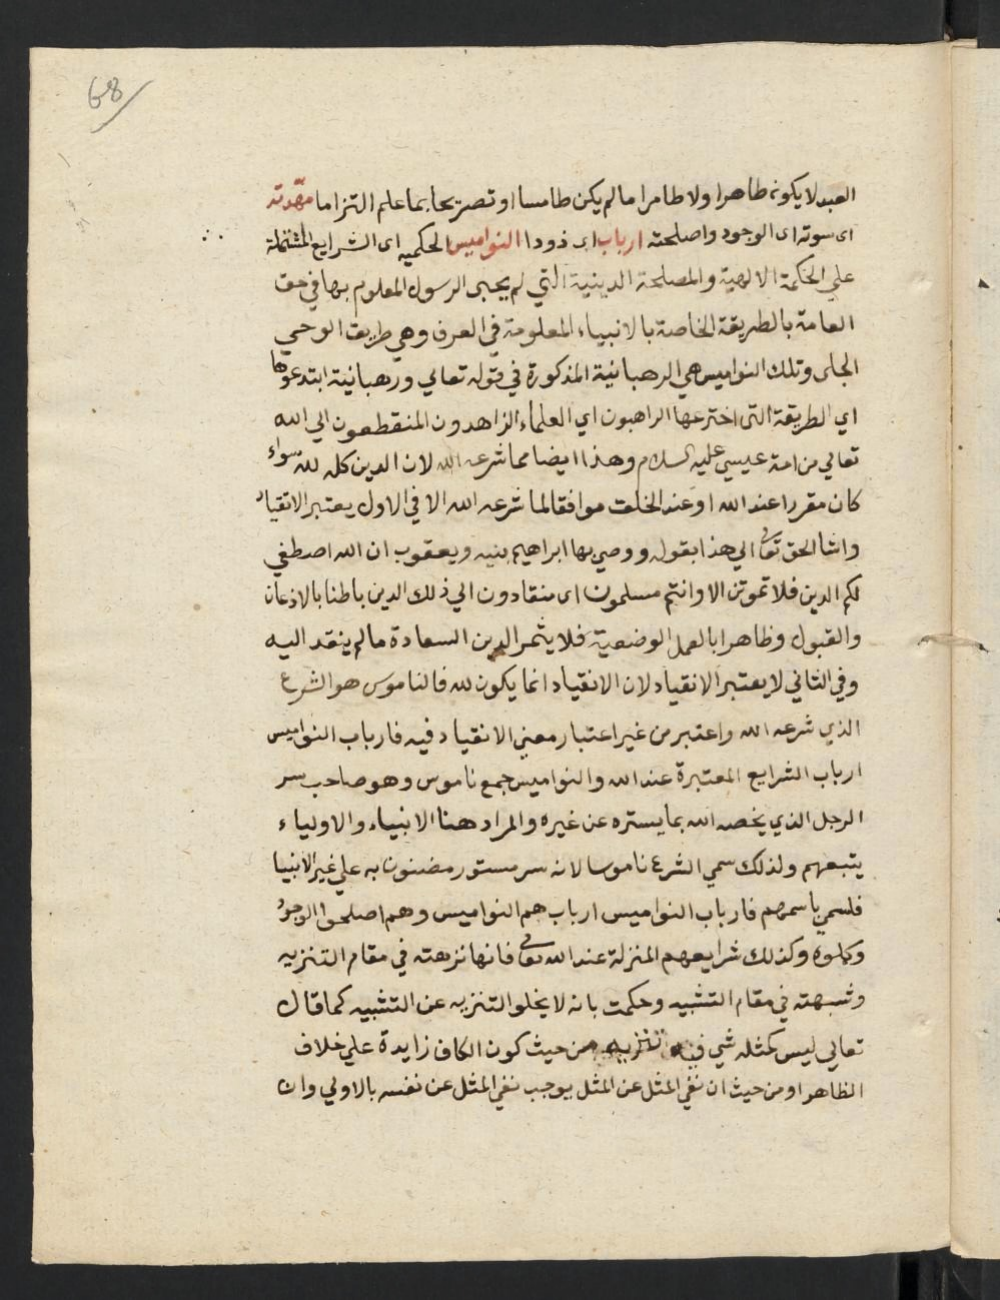 68
العبد لا يكون طاهرا ولا طامرا ما لم يكن طامسا او تصريحا بما علم التزاما مهّدته
اى سوته اى الوجود واصلحته ارباب اى ذووا النواميس الحكميه اى الشرايع المشتملة
علي الحكمة الالهية والمصلحة الدينية التي لم يجى الرسول المعلوم بها في حق
العامة بالطريقة الخاصة بالانبياء المعلومة في العرف وهي طريق الوحي
الجلى وتلك النواميس هي الرهبانية المذكورة في قوله تعالي ورهبانية ابتدعوها
اي الطريقة التى اخترعها الراهبون اي العلماء الزاهدون المنقطعون الي الله
تعالي من امة عيسي عليه السلام وهذا ايضا مما شرعه الله لان الدين كله لله سواء
كان مقررا عند الله او عند الخلق موافقا لما شرعه الله الا في الاول يعتبر الانقياد
واشا الحق تعالى الي هذا بقوله ووصي بها ابراهيم بنيه ويعقوب ان الله اصطفي
لكم الدين فلا تموتن الا وانتم مسلمون اى منقادون الي ذلك الدين باطنا بالاذعان
والقبول وظاهرا بالعمل الوضعية فلا يثمر الدين السعادة ما لم ينقد اليه
وفي الثاني لا يعتبر الانقياد لان الانقياد انما يكون لله فالناموس هو الشرع
الذي شرعه الله واعتبر من غير اعتبار معني الانقياد فيه فارباب النواميس
ارباب الشرايع المعتبرة عند الله والنواميس جمع ناموس وهو صاحب سر
الرجل الذي يخصه الله بما يستره عن غيره والمراد هنا الانبياء والاولياء
يتبعهم ولذلك سمي الشرع ناموسا لانه سر مستور مضنون به علي غير الانبيا
فلسمي باسمهم فارباب النواميس ارباب هم النواميس وهم اصلحوا الوجود
وكملوه وكذلك شرايعهم المنزلة عند الله تعالى فانها نزهته في مقام التنزيه
وشبهته في مقام التشبيه وحكمت بانه لا يخلو التنزيه عن التشبيه كما قال
تعالي ليس كمثله شي فيه تنزيه من حيث كون الكاف زايدة علي خلاف
الظاهر او من حيث ان نفي المثل عن المثل يوجب نفي المثل عن نفسه بالاولي وان